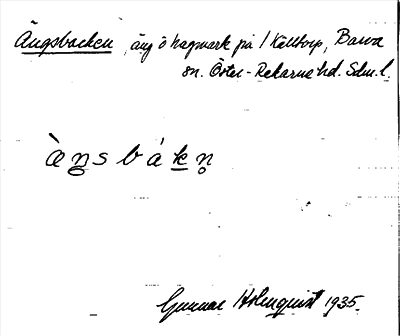 Ängsbacken, äng o hagmark på 1 Källtorp, Barva
sn. Öster-Rekarne hd. Sdm. l.
àn̠sbákn̥
Gunnar Holmquist 1935.